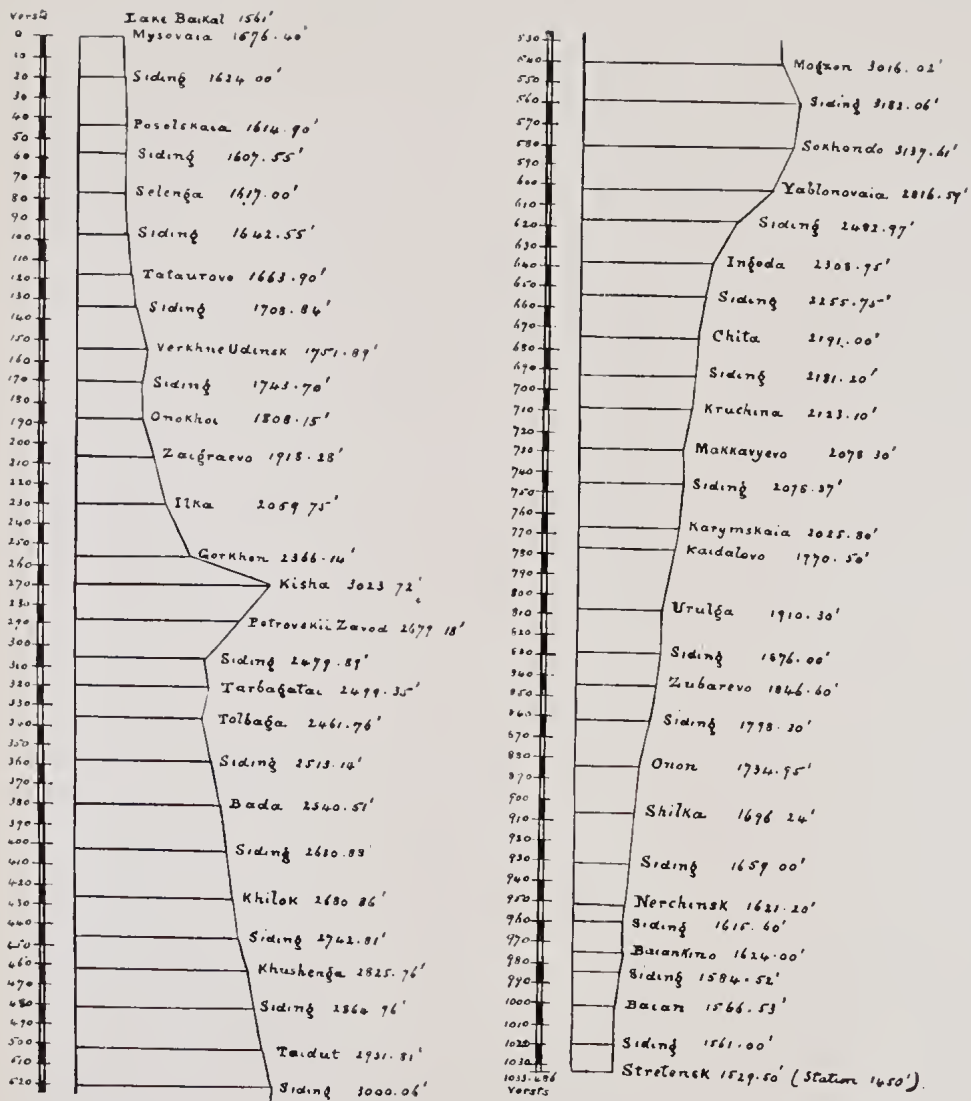 Versts
0
10
20
30
40
50
60
70
80
90
100
110
120
130
140
150
160
170
180
190
200
210
220
230
240
250
260
270
280
290
300
310
320
330
340
350
360
370
380
390
400
410
420
430
440
450
460
470
480
490
500
510
520
Lake Baikal 1561'
Mysovaia 1676.40'
Siding 1624.00'
Posolskaia 1614.90'
Siding 1607.55'
Selenga 1617.00'
Siding 1642.55'
Tataurovo 1663.90'
Siding 1708.84'
Verkhne Udinsk 1751.89'
Siding 1743.70'
Onokhoi 1808.15'
Zaigraevo 1918.28'
Ilka 2059.75'
Gorkhon 2366.14'
Kisha 3023.72'
Petrovskii Zavod 2679.18'
Siding 2479.89'
Tarbagatai 2499.35'
Tolbaga 2461.76'
Siding 2513.14'
Bada 2540.51'
Siding
Khilok 2680.86'
Siding 2742.81'
Khushenga 2825.76'
Siding 2864.96'
Taidut 2931.81'
Siding 3000.06'
530
540
550
560
570
580
590
600
610
620
630
640
650
660
670
680
690
700
710
720
730
740
750
760
770
780
790
800
810
820
830
840
850
860
870
880
890
900
910
920
930
940
950
960
970
980
990
1000
1010
1020
1030
1033.486
Versts
Mogzon 3016.02'
Siding 3182.06'
Sokhondo 3137.61'
Yablonovaia 2816.59'
Siding 2482.97'
Ingoda 2308.95'
Siding 2255.75'
Chita 2191.00'
Siding 2181.20'
Kruchina 2123.10'
Makkavyevo 2078.30'
Siding 2075.37'
Karymskaia 2025.80'
Kaidalovo 1770.50'
Urulga 1910.30'
Siding 1876.00'
Zubarevo 1846.60'
Siding 1798.30'
Onon 1734.95'
Shilka 1696.24'
Siding 1659.00'
Nerchinsk 1621.20'
Siding 1615.60'
Baiankino 1624.00'
Siding 1584.52'
Baian 1566.53'
Siding 1561.00'
Stretensk 1529.50' (Station 1450').